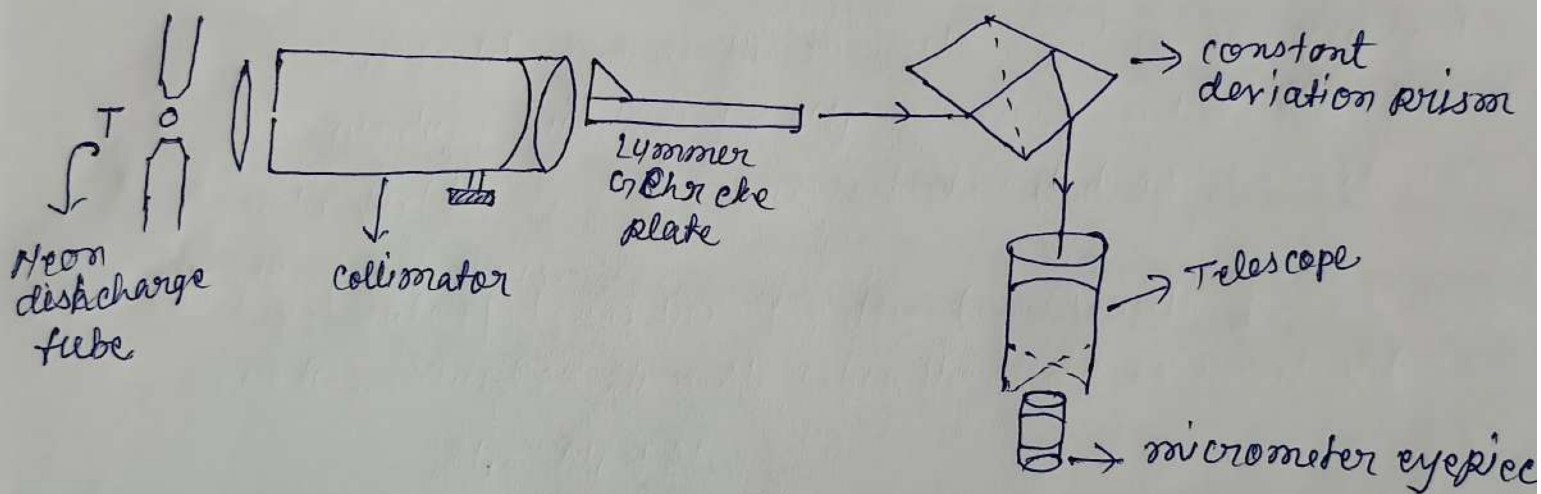 T
Neon
dishcharge
tube
collimator
Lymmer
GEhrcke
plate
constant
deviation prism
Telescope
micrometer eyepiec